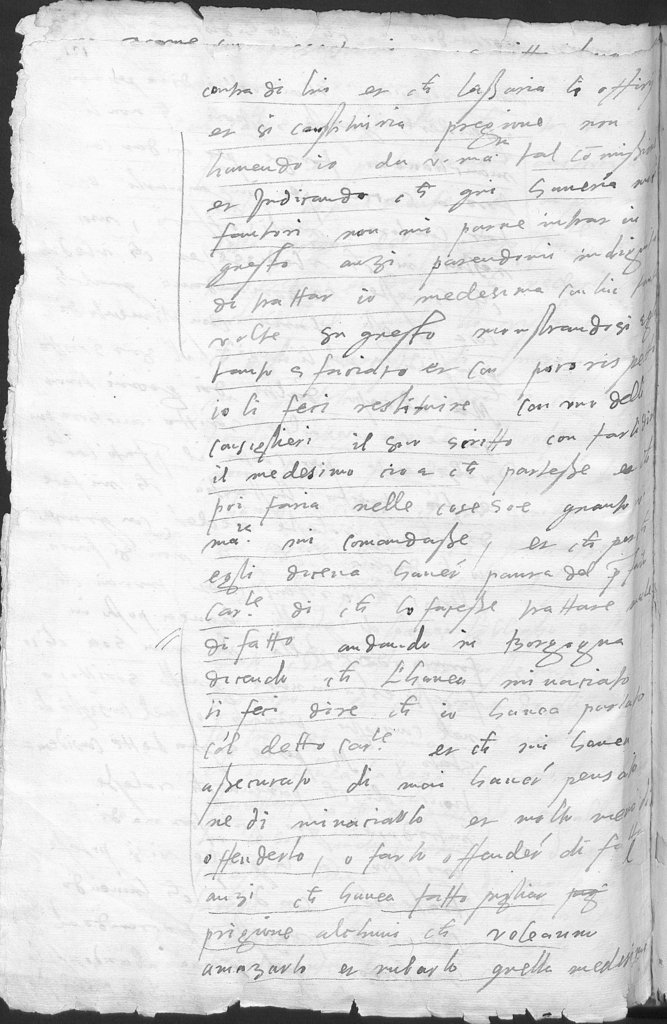 contra di lui et ch' lassaria li offitij
et si constituiria pregione non
havendo io da v. ma.ta tal comissione
et Judicando ch' qui haveria
fautori non mi parve intrar in
questo anzi parendomi indignità
di trattar io medesima con lui
volte su questo monstrandosi
tanto sfaciato et con poco rispetto
io li feci restituire con uno delli
consiglieri il suo scritto con farli dir
il medesimo cio è ch' partesse et
poi faria nelle cose soe quanto v.
ma.ta mi comandasse, et ch' perche
egli diceva haver paura del p.
Car.le di ch' lo facesse trattare male
di fatto andando in Borgogna
dicendo ch' l'havea minaciato
li feci dire ch' io havea parlato
col detto Car.le et ch' mi havea
assecurato di mai haver pensato
ne di minaciarlo et molto meno di
offenderlo, o farlo offender di fatto
anzi ch' havea fatto pigliar
prigione alchuni ch' voleanno
amazarlo et rubarlo quella medesima